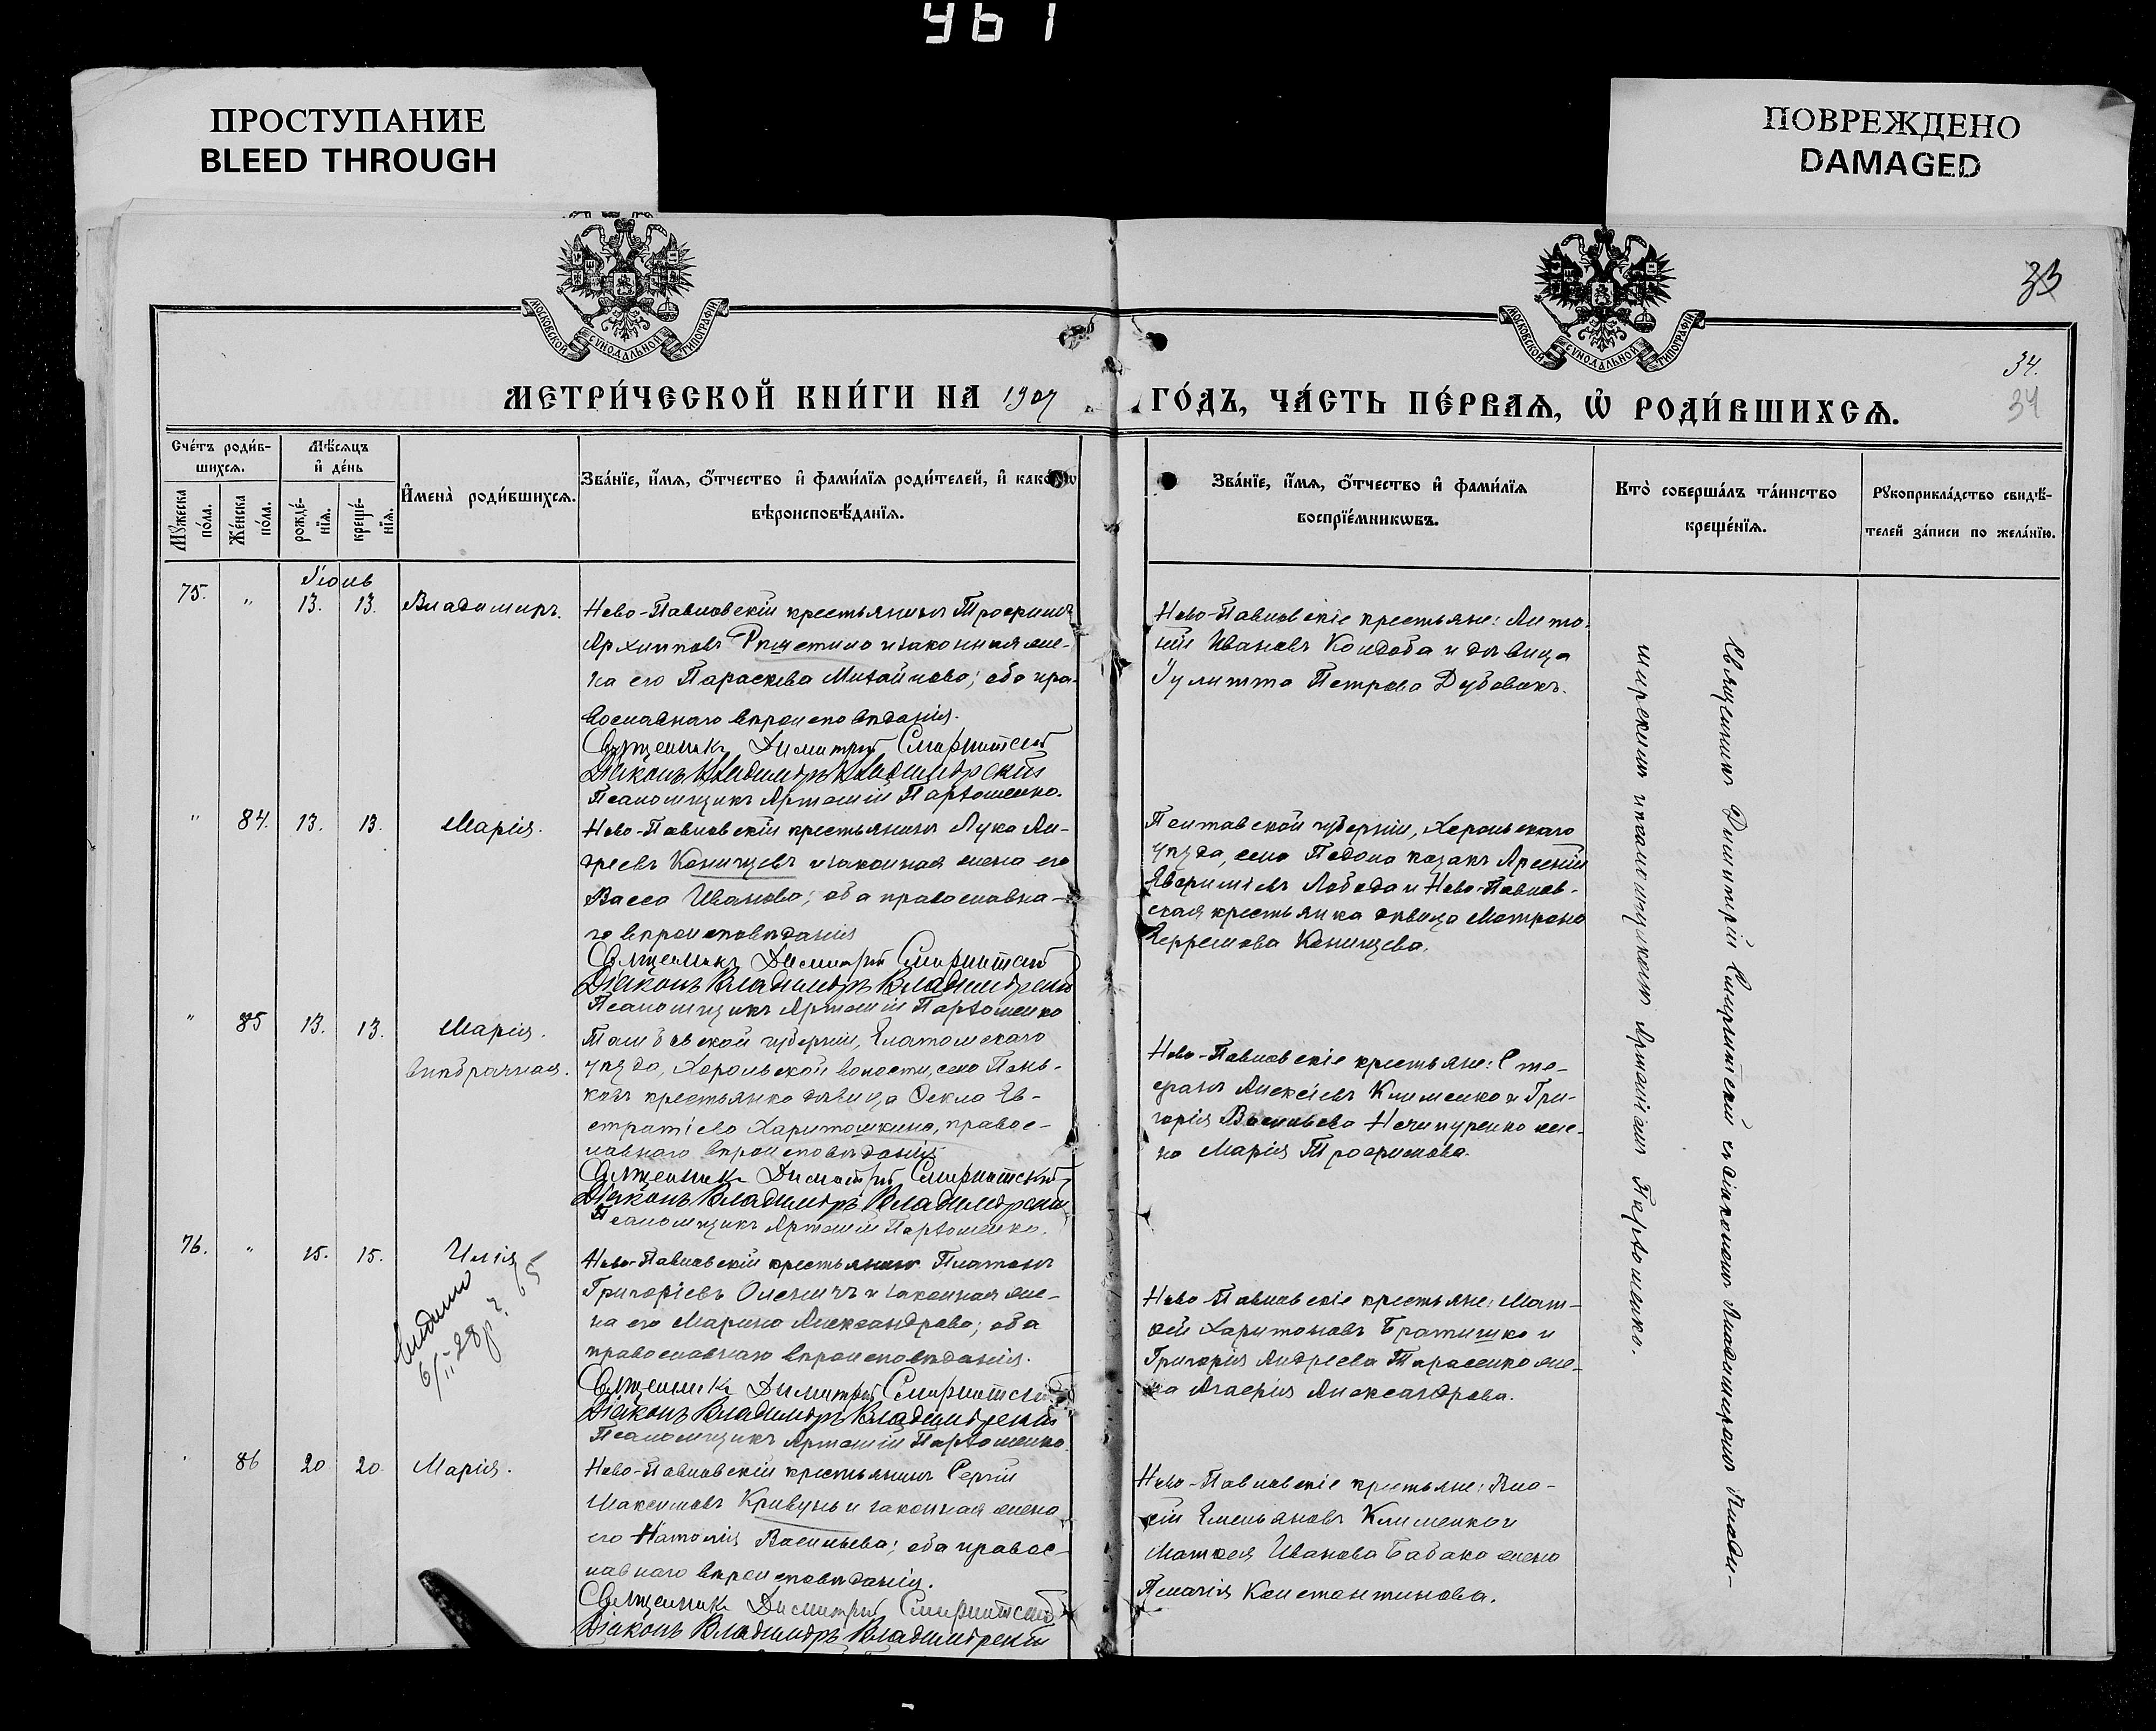 461
ПРОСТУПАНИЕ
BLEED THROUGH
ПОВРЕЖДЕНО
DAMAGED
МОСКОВСКОЙ СѴНОДАЛЬНОЙ ТИПОГРАФІИ
МОСКОВСКОЙ СѴНОДАЛЬНОЙ ТИПОГРАФІИ
33
34.
34
МЕТРИ́ЧЕСКОЙ КНИ́ГИ НА 1907 ГО́ДЪ, ЧА́СТЬ ПЕ́РВАѦ, Ѡ҆ РОДИ́ВШИХСѦ.
Сче́тъ роди́в-
шихсѧ.
Мꙋ́жеска по́ла.
Же́нска по́ла.
Мѣ́сѧцъ
и҆ де́нь
рожде́-
нїѧ.
креще́-
нїѧ.
И҆мена̀ роди́вшихсѧ.
Зва́нїе, и҆́мѧ, ѻ҆́тчество и҆ фами́лїѧ роди́телей, и҆
вѣроисповѣ́данїѧ.
Зва́нїе, и҆́мѧ, ѻ҆́тчество и҆ фами́лїѧ
воспрїе́мникѡвъ.
Кто̀ соверша́лъ та́инство
креще́нїѧ.
Рꙋкоприкла́дство свидѣ́-
телей за́писи по жела́нїю.
Іюль
75. " 13. 13. Владимиръ.
Ново-Павловскій крестьянинъ Трофимъ
Архиповъ и законная же-
на его Параскева Михайлова; оба пра-
вославнаго вѣроисповѣданія.
Священникъ Димитрій
Діаконъ Владимиръ Владимірскій
Псаломщикъ Артемій Пархоменко.
Ново-Павловскіе крестьяне: Анто-
ній Ивановъ и дѣвица
Іулитта Петрова Дубовикъ.
" 84. 13. 13. Марія.
Ново-Павловскій крестьянинъ Лука Ан-
дреевъ Конищевъ и законная жена его
Васса Иванова; оба православна-
го вѣроисповѣданія
Священникъ Димитрій
Діаконъ Владимиръ Владимірскій
Псаломщикъ Артемій Пархоменко
Полтавской губерніи, Хорольскаго
уѣзда, села казакъ Арсеній
Лобода и Ново-Павлов-
ская крестьянка дѣвица Матрона
Конищева.
" 85 13. 13. Марія.
внѣбрачная.
Тамбовской губерніи, Елатомскаго
уѣзда, волости, села Пень-
ковъ крестьянка дѣвица Ѳекла Ев-
стратіева Харитошкина, правос-
лавнаго вѣроисповѣданія
Священникъ Димитрій
Діаконъ Владимиръ Владимірскій
Псаломщикъ Артемій Пархоменко.
Ново-Павловскіе крестьяне: Сте-
фанъ Алексѣевъ Клименко и Гри-
горія Васильева Нечипуренко же-
на Марія Трофимова.
76. " 15. 15. Илія
Ново-Павловскій крестьянинъ Платонъ
Григоріевъ и законная же-
на его Марина Александрова; оба
православнаго вѣроисповѣданія.
Священникъ Димитрій
Діаконъ Владимиръ Владимірскій
Псаломщикъ Артемій Пархоменко.
Ново-Павловскіе крестьяне: Мат-
ѳей Харитоновъ Братишко и
Григорія Андреева Тарасенко же-
на Агафія Александрова.
86 20 20 Марія.
Ново-Павловскій крестьянинъ Сергій
Максимовъ Кривунь и законная жена
его Наталія Васильева; оба правос-
лавнаго вѣроисповѣданія.
Священникъ Димитрій
Діаконъ Владимиръ Владимірскій
Ново-Павловскіе крестьяне:
Емельяновъ Клименко и
Матѳея Иванова Бабака жена
Константинова.
Священникъ Димитрій съ діакономъ Владимиромъ Влади-
мірскимъ и псаломщикомъ Артеміемъ Пархоменко.